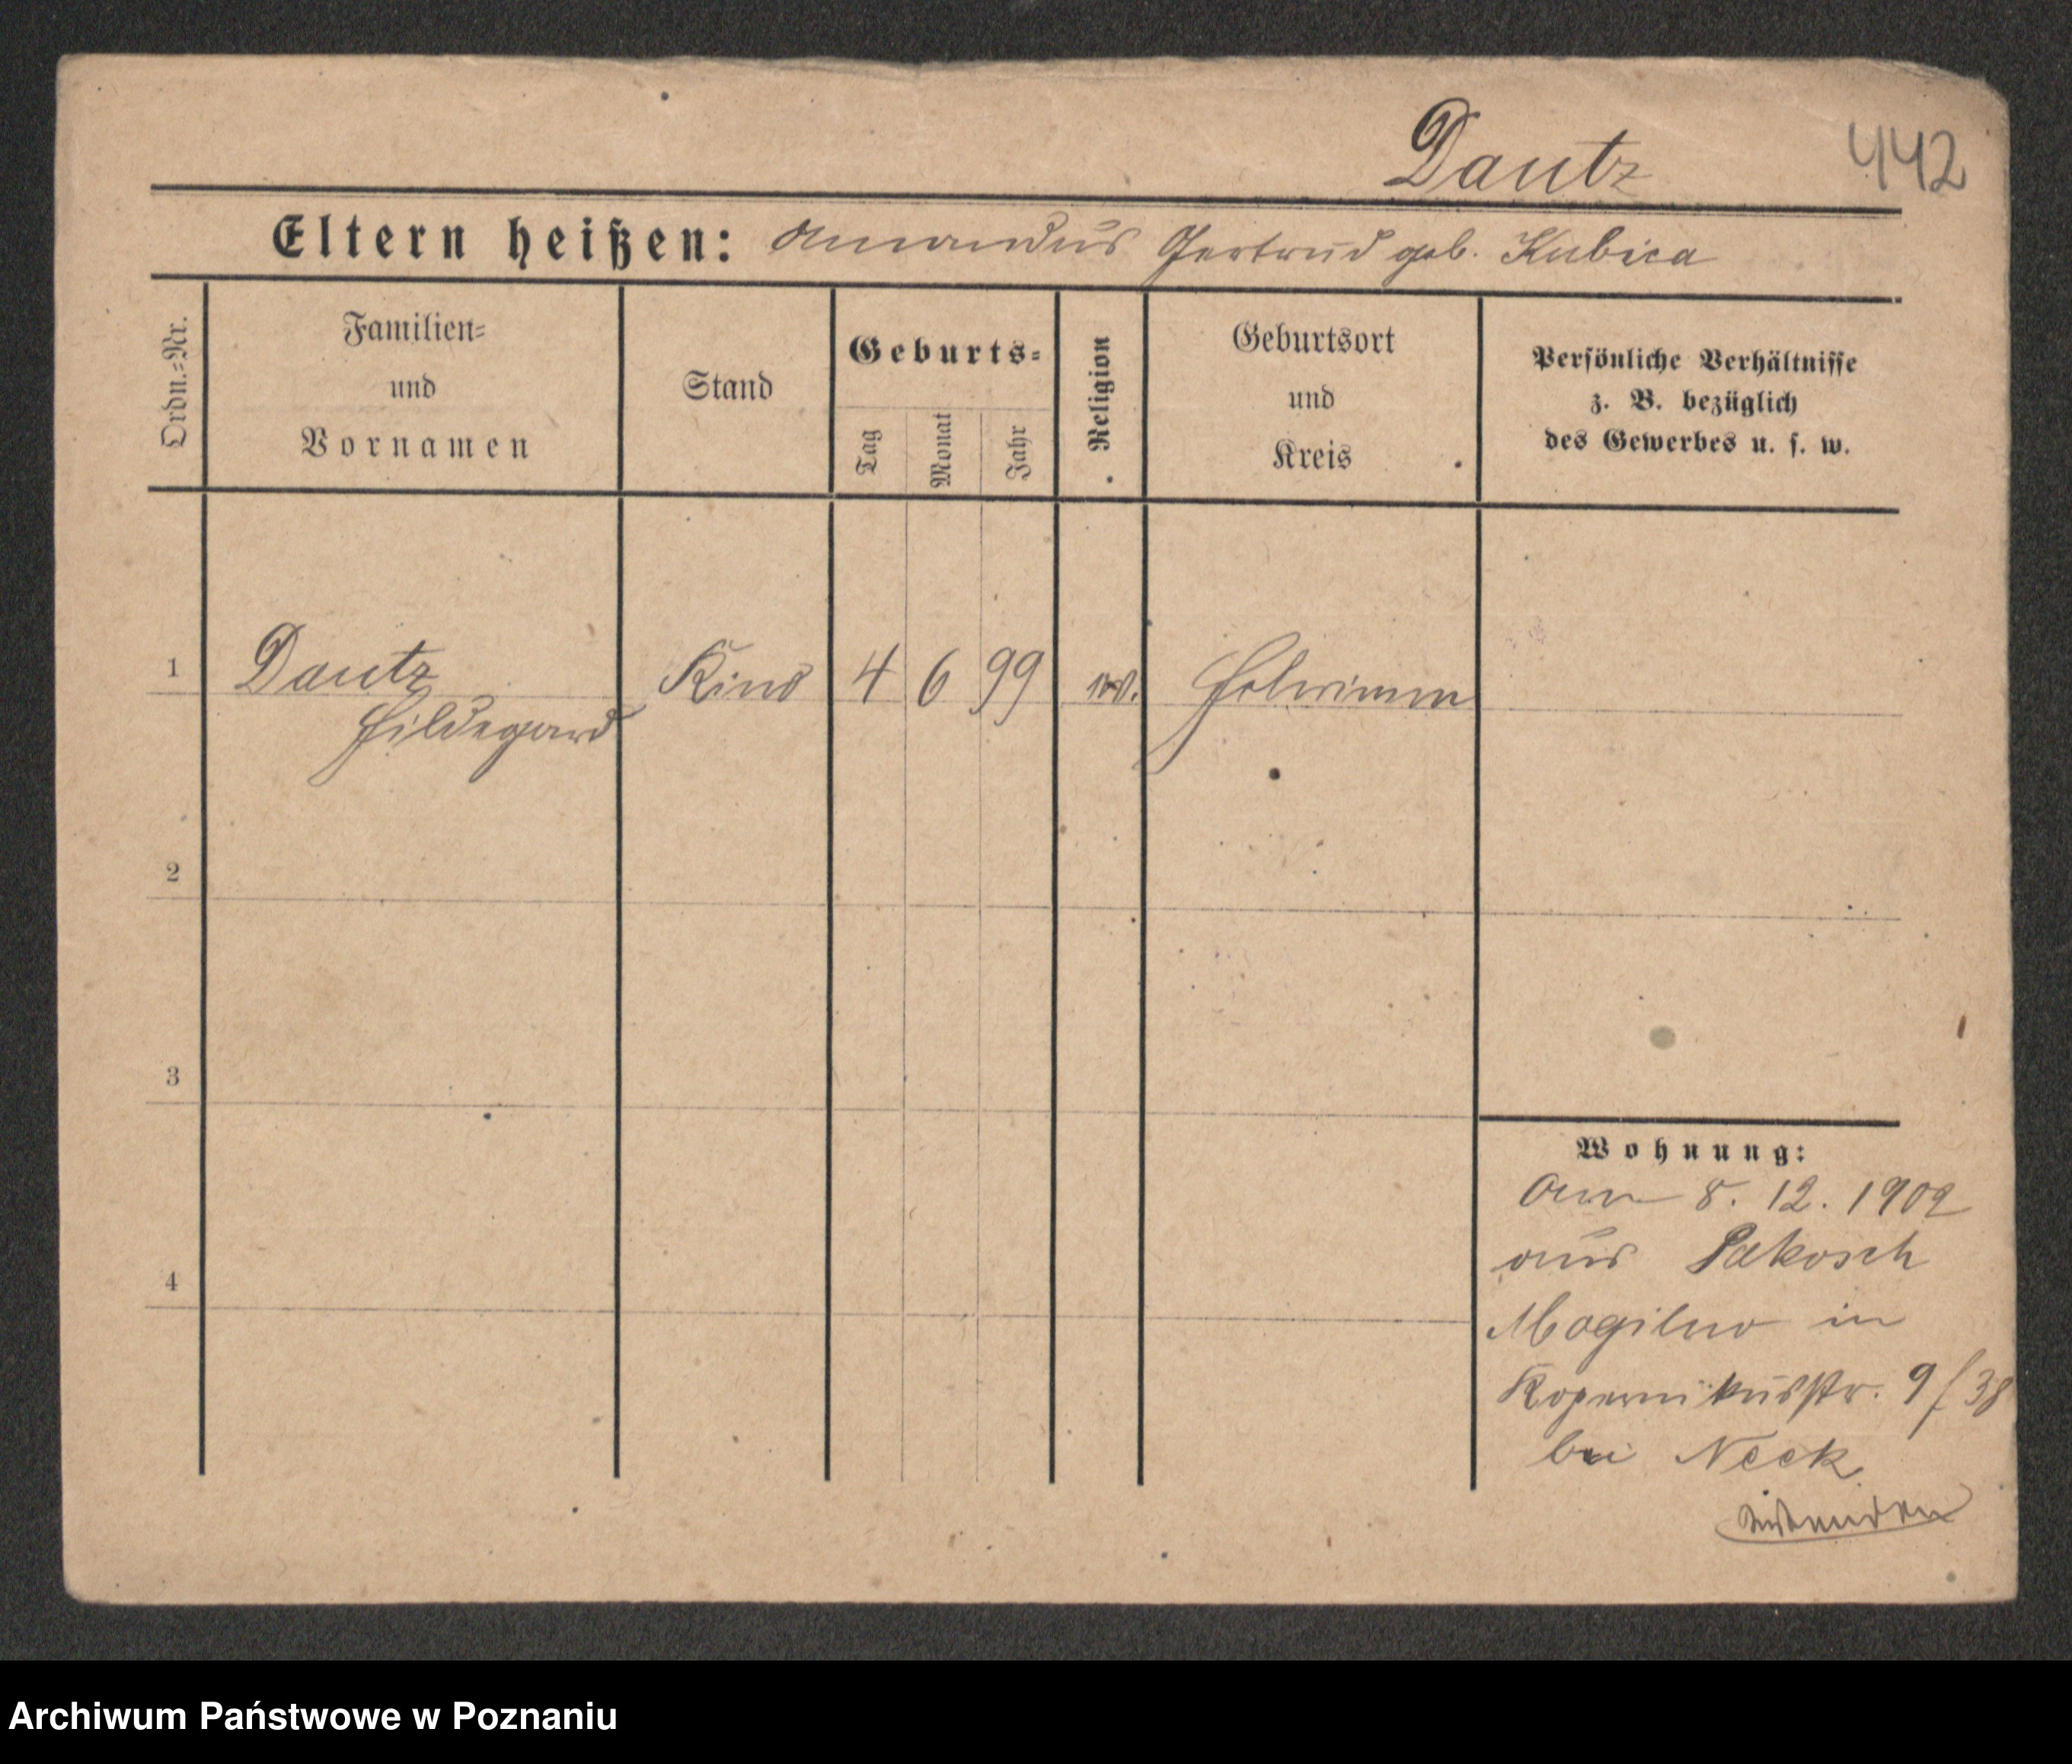 Dautz 442
Eltern heißen: Amandus Gertrud geb. Kubica
Ordn.=Nr.
Familien=
und
Vornamen
Stand
Geburts=
Tag
Monat
Jahr
Religion
Geburtsort
und
Kreis
Persönliche Verhältnisse
z. B. bezüglich
des Gewerbes u. s. w.
1 Dautz Kind 4 6 99
Hildegard
2
3
4
Wohnung:
Am 8. 12. 1902
aus Pakosch
Mogilno in
Kopernikusstr. 9/38
bei Neck
Archiwum Państwowe w Poznaniu